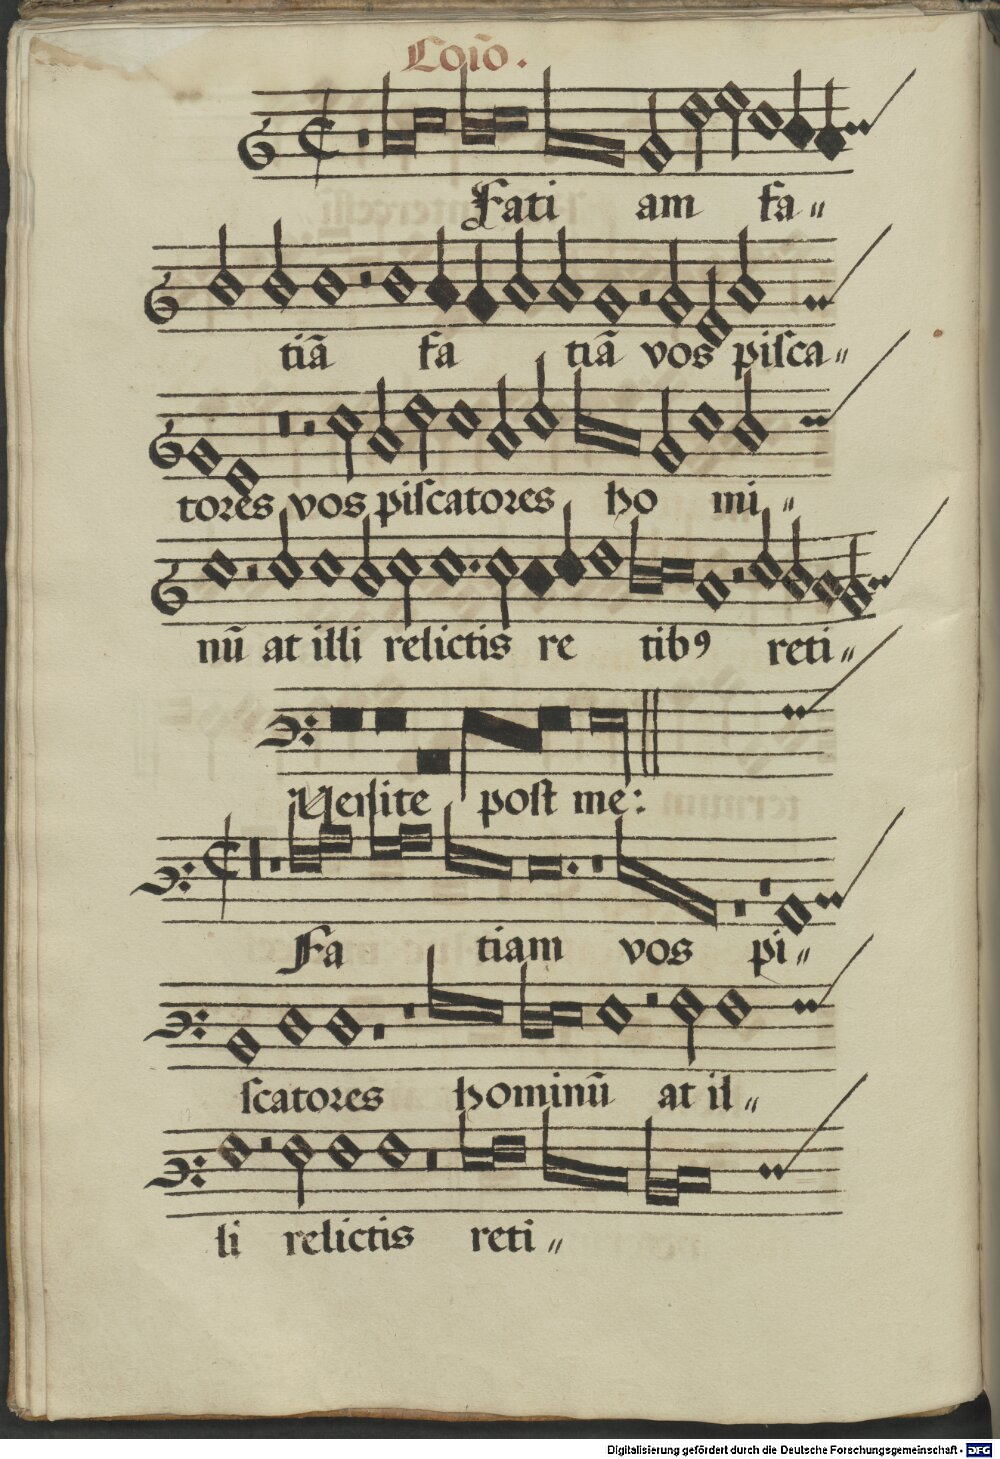 Coiō.
Fati am fa〃
tiā fa tiā vos piſca〃
tores vos piſcatores ho mi〃
nū at illi relictis re tibꝰ reti〃
Venite post me:
Fa tiam vos pi〃
ſcatores hominū at il〃
li relictis reti〃
Digitalisierung gefördert durch die Deutsche Forschungsgemeinschaft - DFG